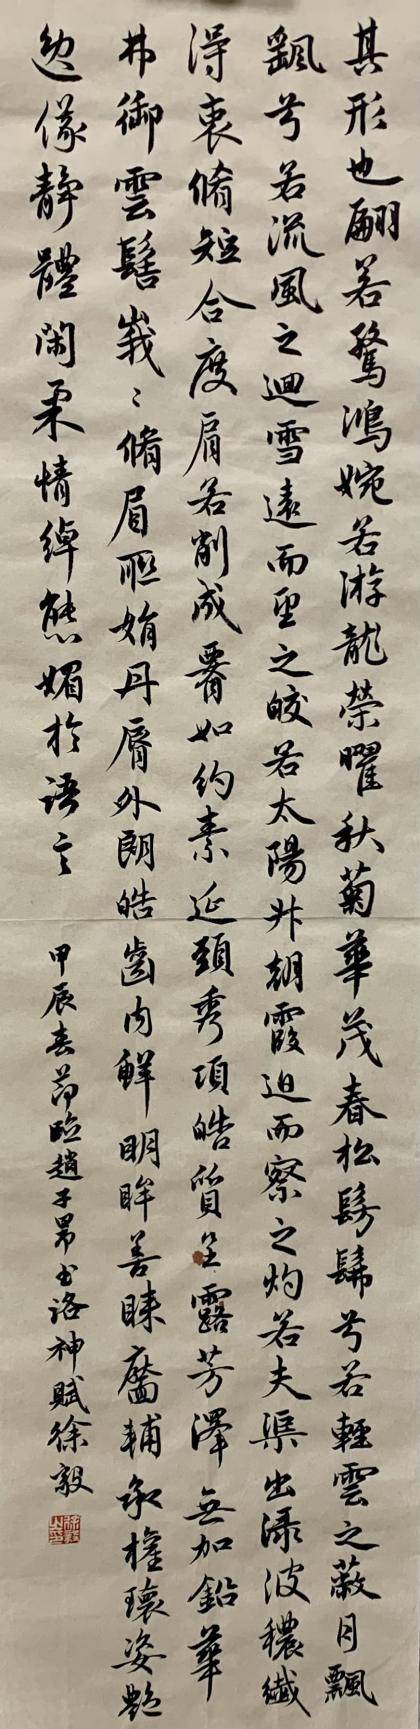 其形也翩若驚鴻婉若游龍榮曜秋菊華茂春松髣髴兮若輕雲之蔽月飄
飖兮若流風之迴雪遠而望之皎若太陽升朝霞迫而察之灼若夫渠出淥波穠纖
得衷脩短合度肩若削成䙅如約素延頸秀項皓質呈露芳澤無加鉛華
弗御雲髻峩〻脩眉聯娟丹脣外朗皓齒內鮮明眸善睞靨輔承權瓌姿艷
逸儀靜體閑柔情綽態媚於語言
甲辰春節臨趙子昂書洛神賦徐毅